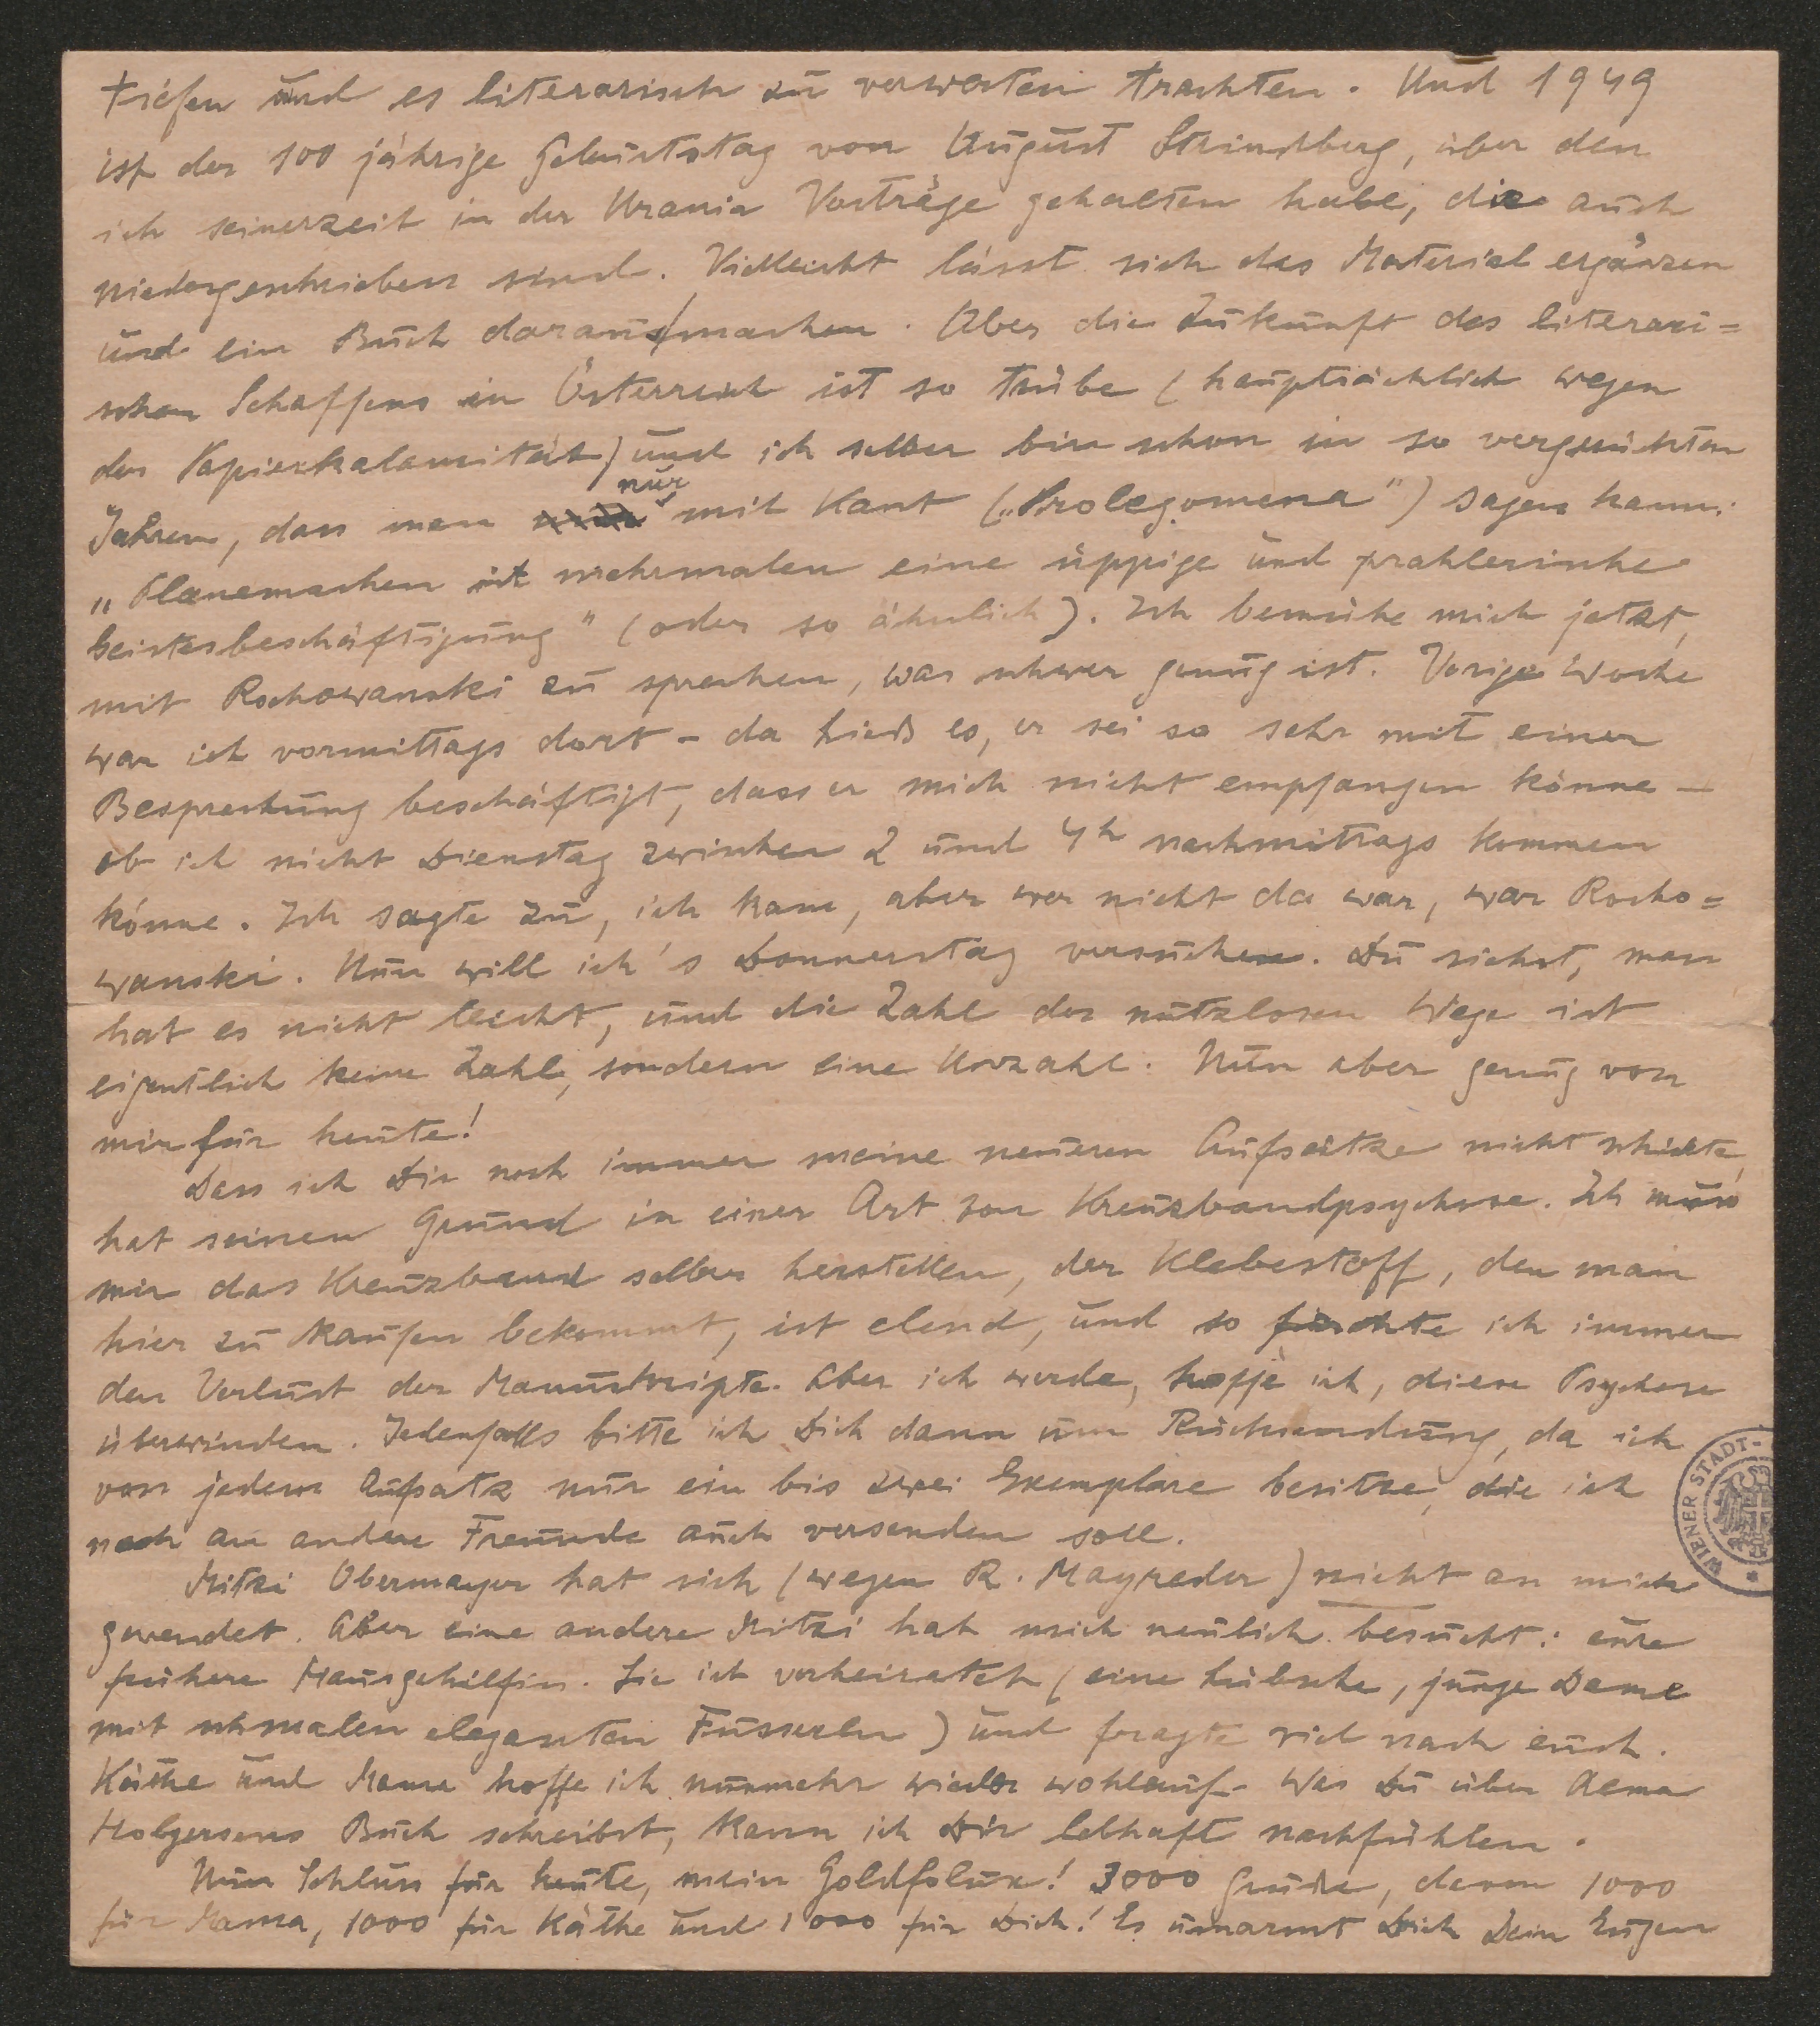 tiefen und es literarisch zu verwerten trachten. Und 1949
ist der 100 jährige Geburtstag von August Strindberg, über den
ich seinerzeit in der Urania Vorträge gehalten habe, die auch
niedergeschrieben sind. Vielleicht lässt sich das Material ergänzen
und ein Buch daraus/machen. Aber die Zukunft des literari=
schen Schaffens in Österreich ist so trübe (hauptsächlich wegen
der Papierkalamität) und ich selber bin schon in so vergerückten
Jahren, dass man nur mit Kant („Prolegomena") sagen kann:
„Plänemachen ist mehrmalen eine üppige und prahlerische
Geistesbeschäftigung" (oder so ähnlich). Ich bemühe mich jetzt,
mit Rochowanski zu sprechen, was schwer genug ist. Vorige Woche
war ich vormittags dort - da hieß es, er sei so sehr mit einer
Besprechung beschäftigt, dass er mich nicht empfangen könne -
ob ich nicht Dienstag zwischen 2 und 4h nachmittags kommen
könne. Ich sagte zu, ich kam, aber wer nicht da war, war Rocho=
wanski. Nun will ich's Donnerstag versuchen. Du siehst, man
hat es nicht leicht, und die Zahl der nutzlosen Wege ist
eigentlich keine Zahl, sondern eine Unzahl. Nun aber genug von
mir für heute!
Dass ich Dir noch immer meine neueren Aufsätze nicht schickte,
hat seinen Grund in einer Art von Kreuzbandpsychose. Ich muss
mir das Kreuzband selber herstellen, der Klebestoff, den man
hier zu kaufen bekommt, ist elend, und so fürchte ich immer
den Verlust der Manuskripte. Aber ich werde, hoffe ich, diese Psychose
überwinden. Jedenfalls bitte ich Dich dann um Rücksendung, da ich
von jedem Aufsatz nur ein bis zwei Exemplare besitze, die ich
noch an andere Freunde auch versenden soll.
Mitzi Obermayer hat sich (wegen R. Mayreder) nicht an mich
gewendet. Aber eine andere Mitzi hat mich neulich besucht: eure
frühere Hausgehilfin. Sie ist verheiratet (eine hübsche, junge Dame
mit schmalen eleganten Füsserln) und fragte viel nach euch.
Käthe und Mama hoffe ich nunmehr wieder wohlauf. Was Du über Alma
Holgersens Buch schreibst, kann ich Dir lebhaft nachfühlen.
Nun Schluss für heute, mein Goldfolux! 3000 Grüsse, davon 1000
für Mama, 1000 für Käthe und 1000 für Dich! Es umarmt Dich Dein Eugen
WIENER STADT-